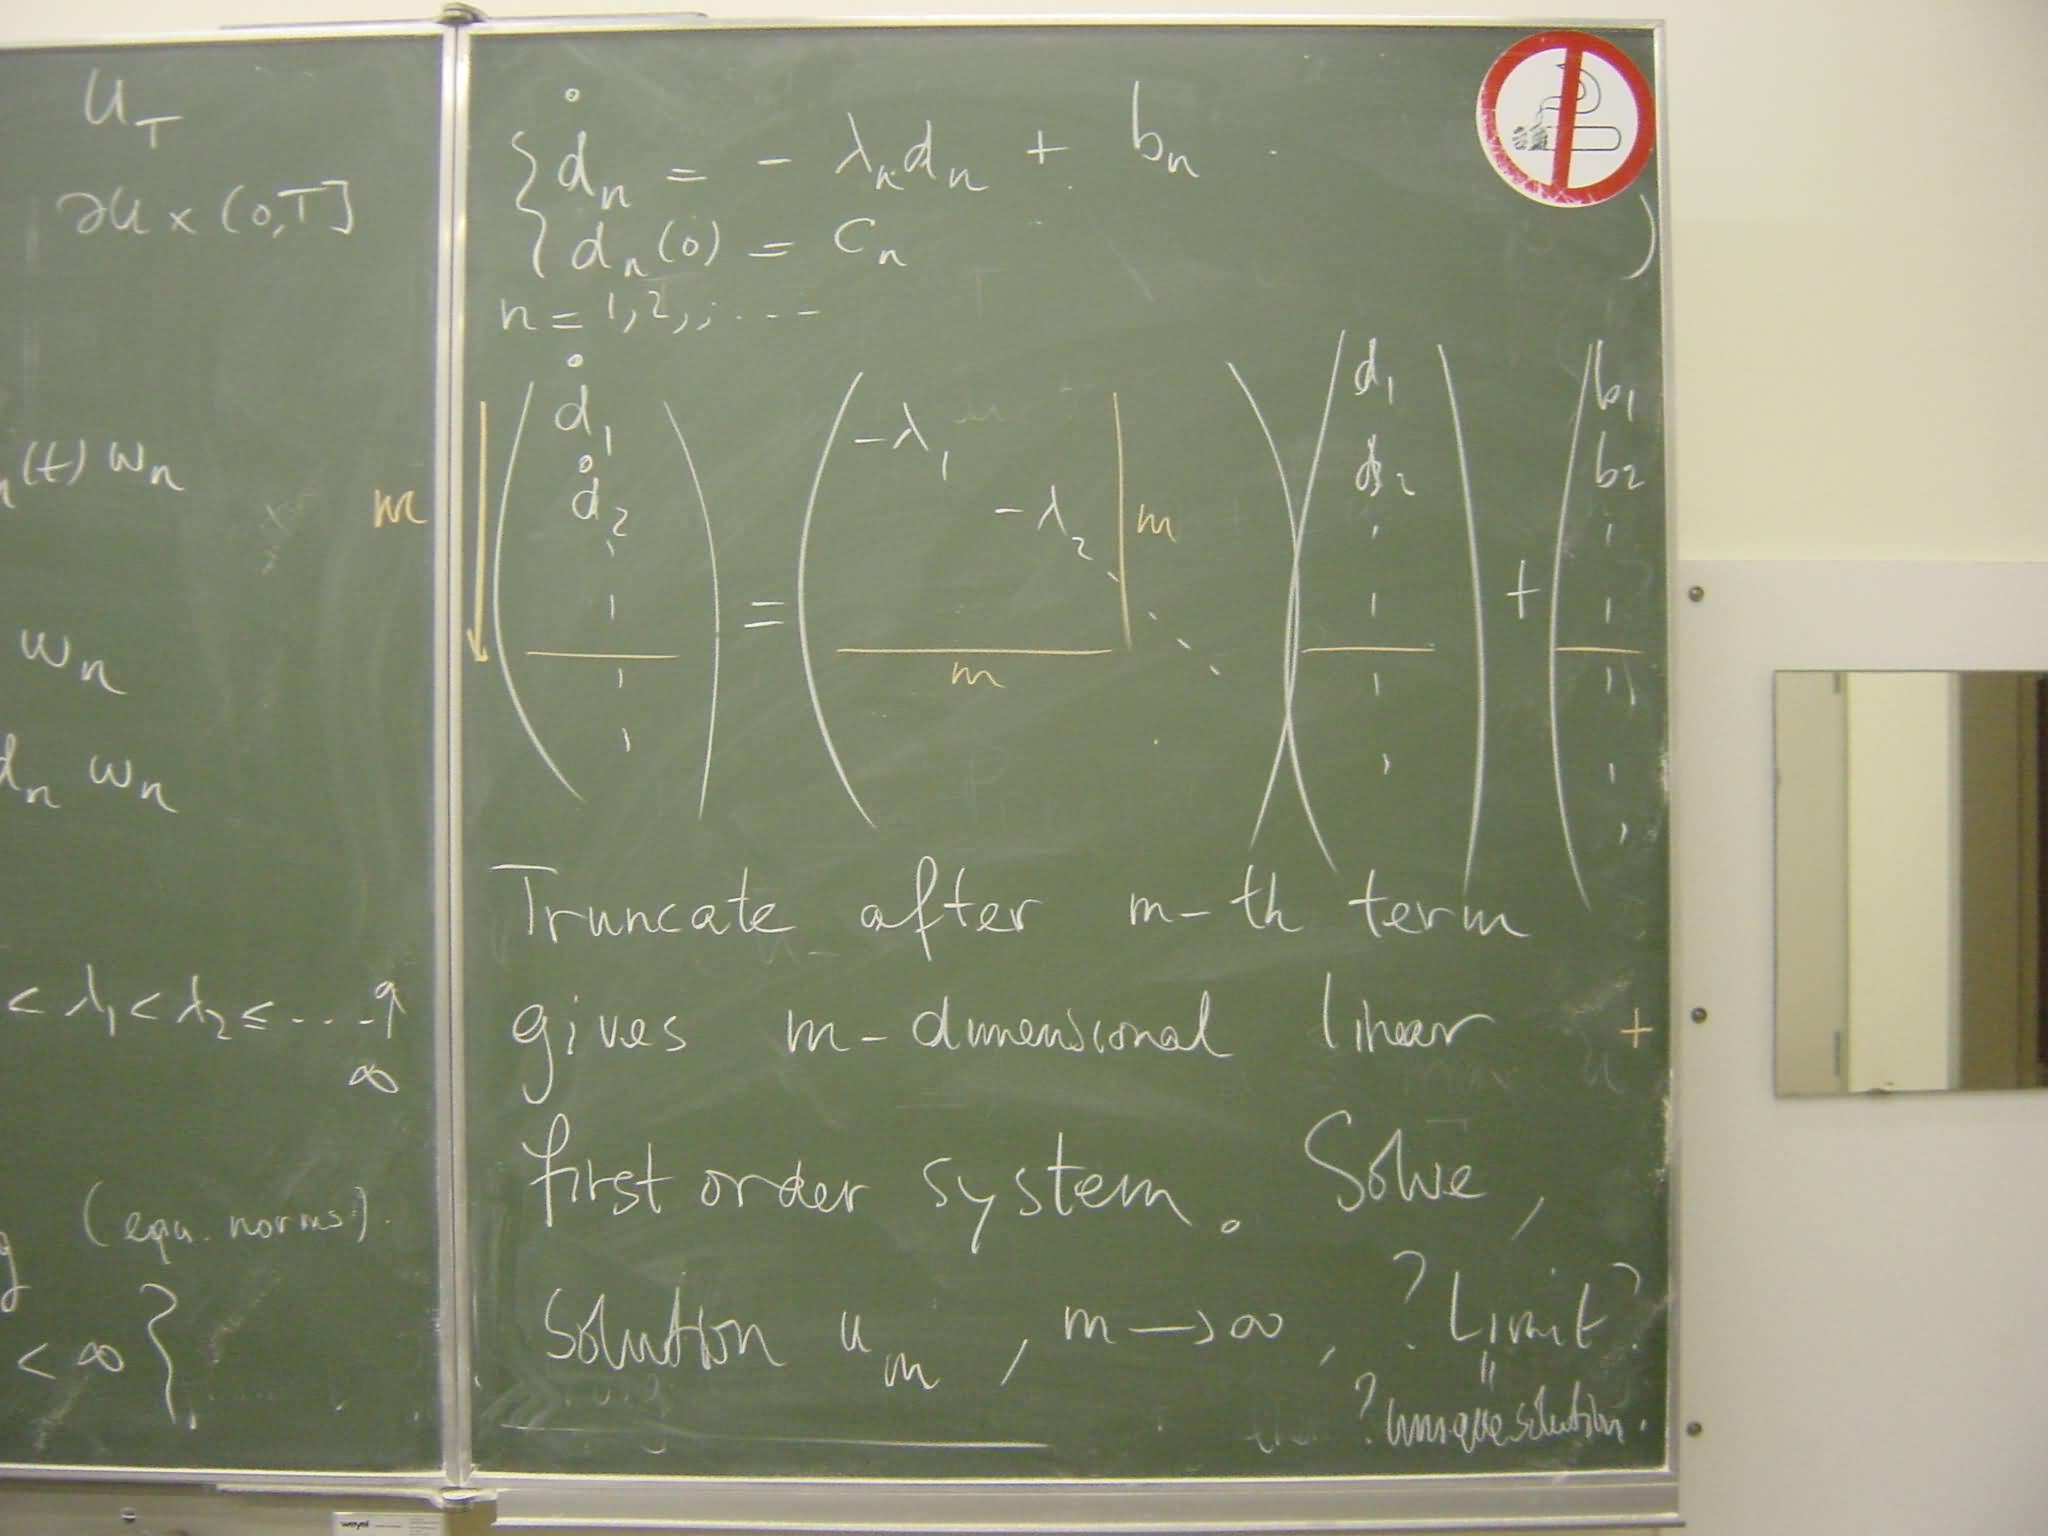 U_T
∂U × (0,T]
(t) w_n
w_n
d_n w_n
< λ_1 < λ_2 ≤ ... ↑
∞
(equ. norms).
< ∞ }
{ ḋ_n = - λ_n d_n + b_n
{ d_n(0) = c_n
n = 1, 2, , ; . . - -
m ( ḋ_1 ) = ( -λ_1 m ) ( d_1 ) + ( b_1
ḋ_2 -λ_2 d_2 b_2
m
Truncate after m-th term
gives m-dimensional linear +
first order system. Solve,
solution u_m, m → ∞, ? Limit ?
"
? unique solution.
weyel